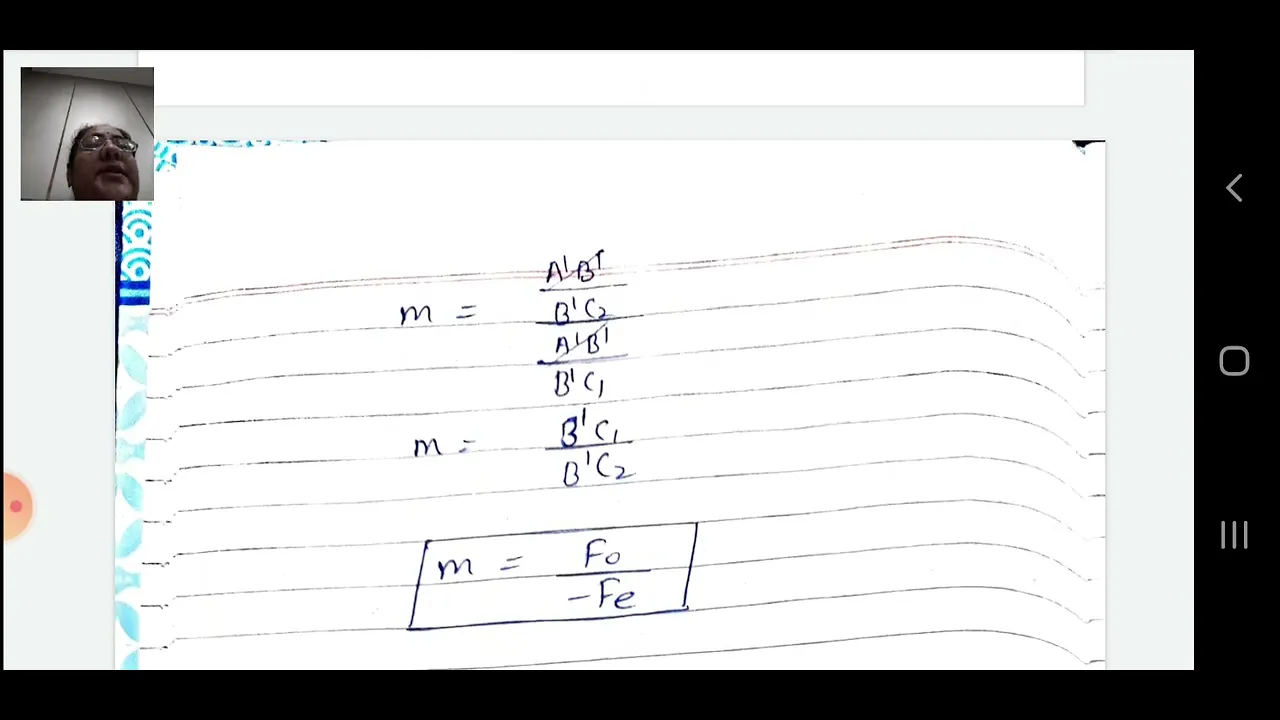 A'B'
m = B'C₂
A'B'
B'C₁
m = B'C₁
B'C₂
m = Fo
-Fe